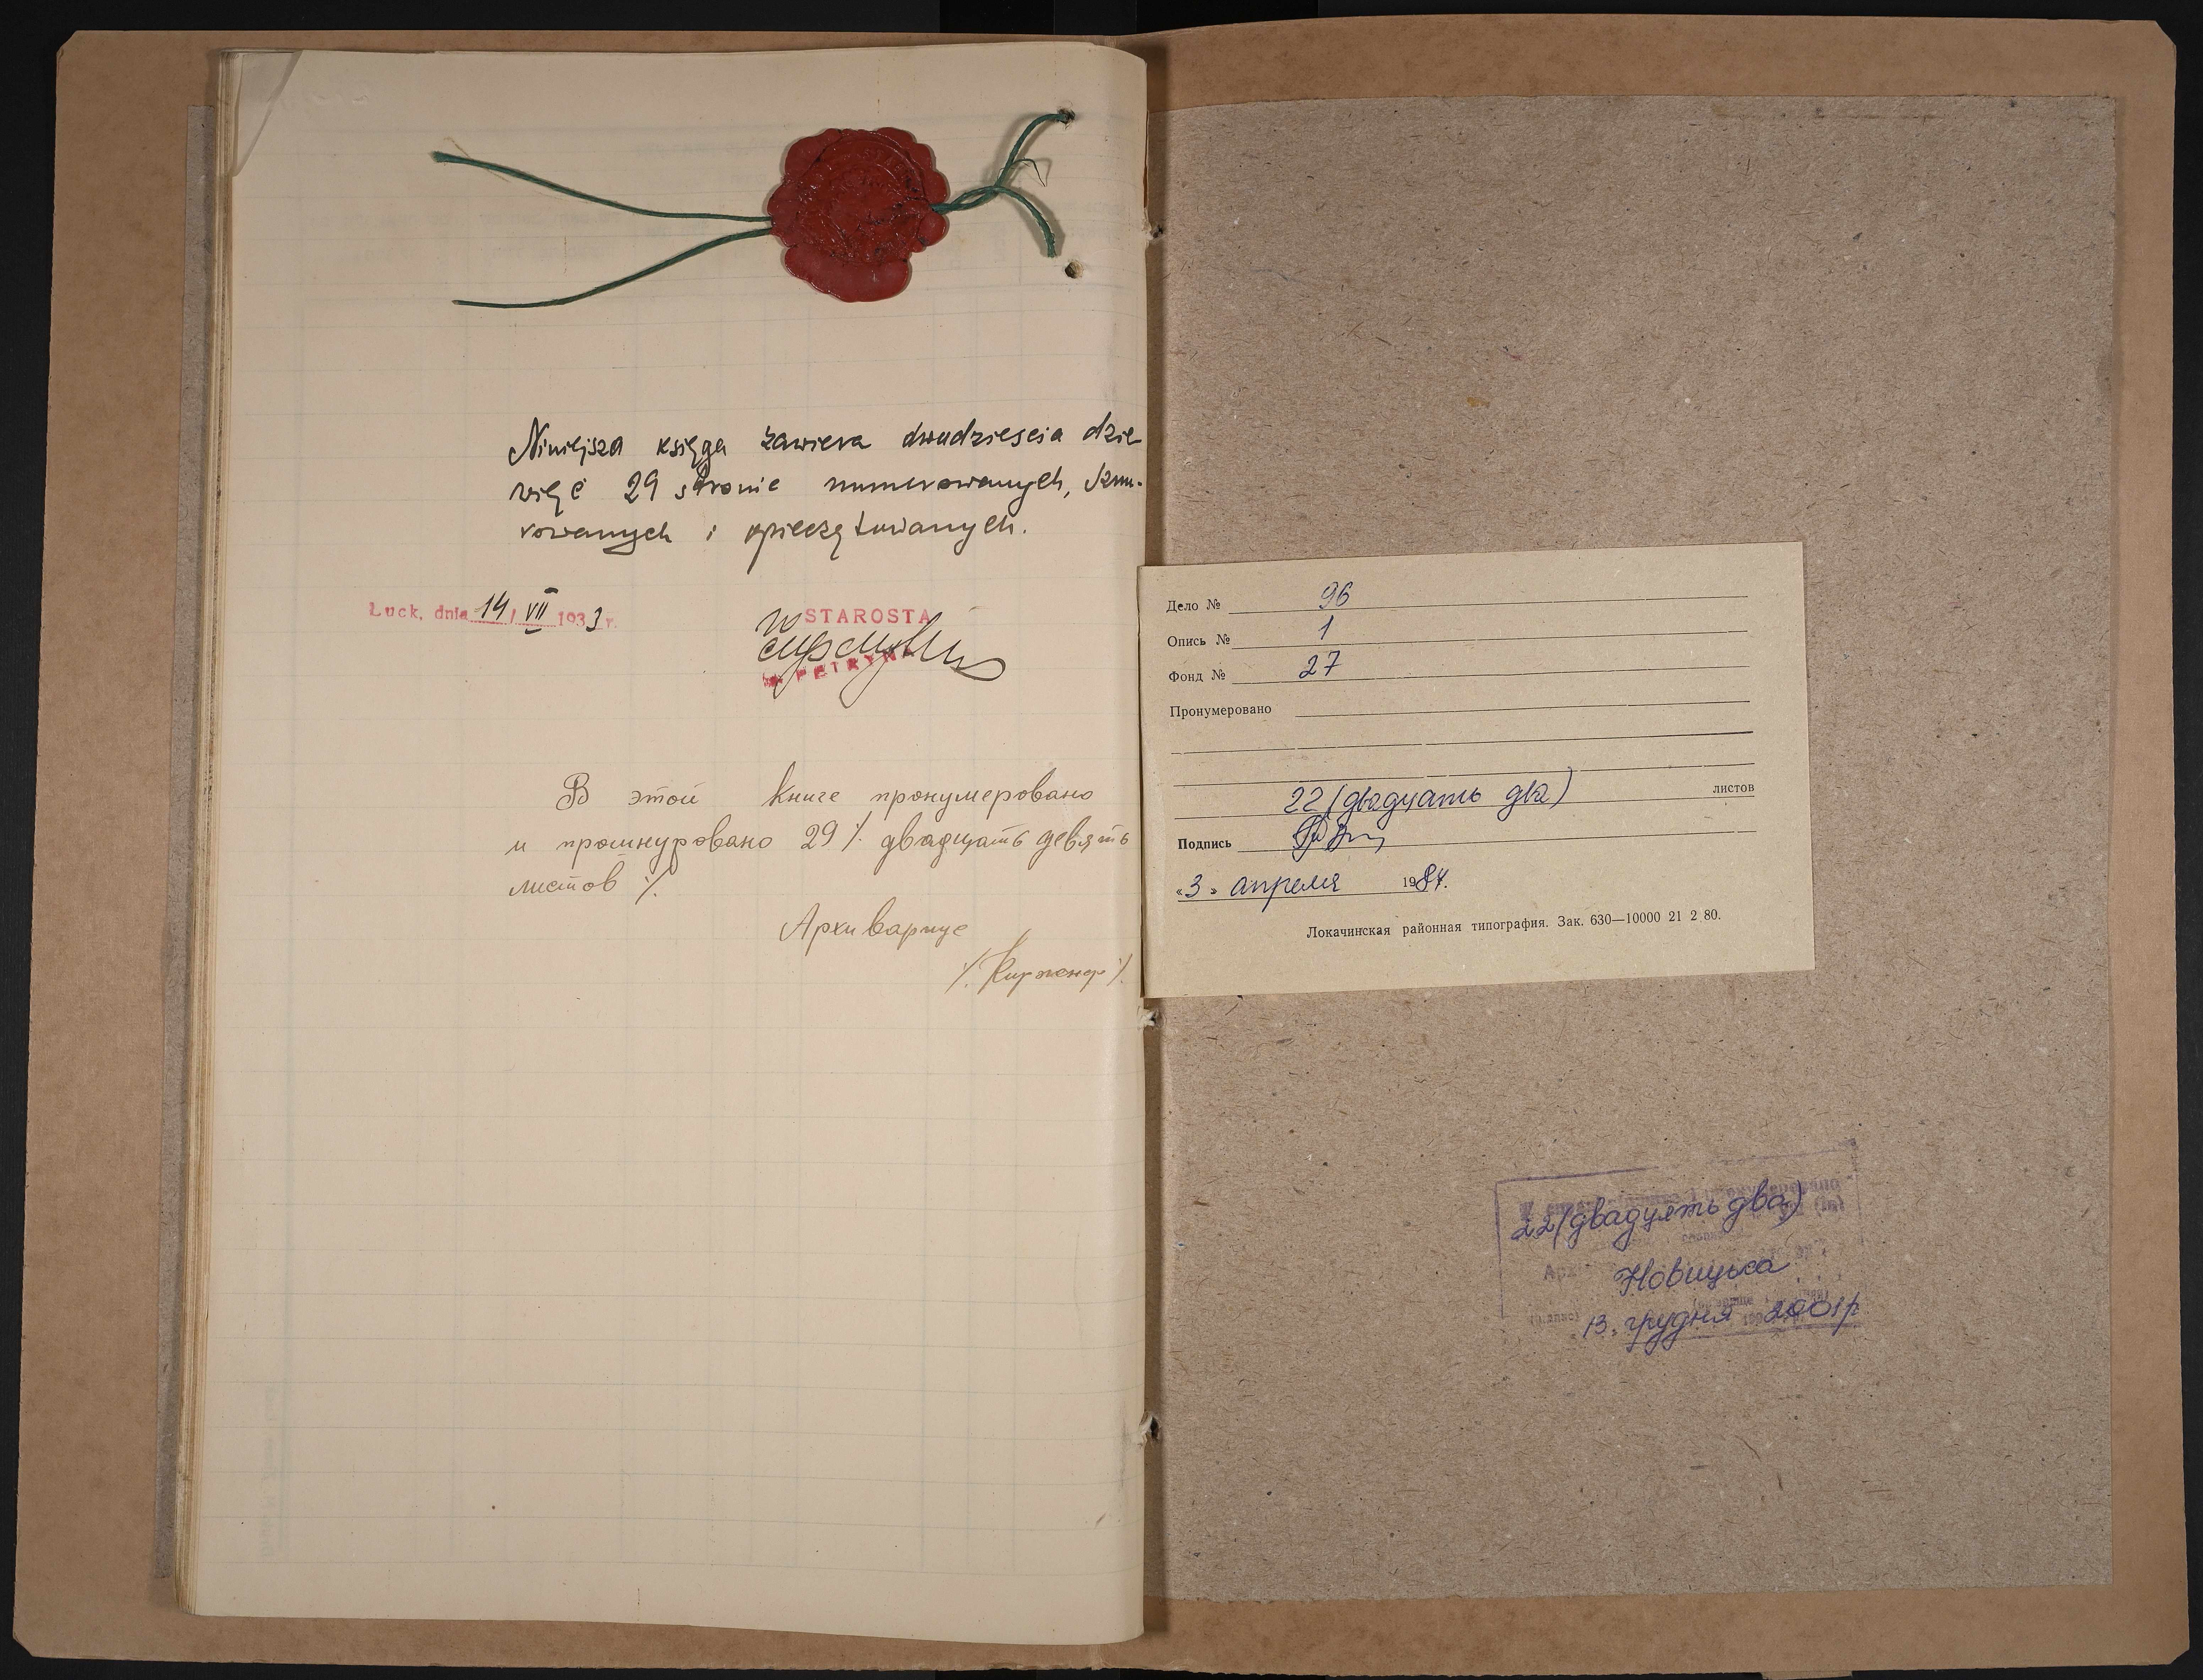 Niniejsza księga zawiera dwudziescia dzie-
więć 29 stronic numerowanych, sznu-
rowanych i opieczętowanych.
Łuck, dnia 14/VII 1933 r.
STAROSTA
В этой книге пронумеровано
и прошнуровано 29 ٪ двадцать девять
листов ٪
Архивариус
Дело № 96
Опись № 1
Фонд № 27
Пронумеровано
22 (двадцать два) листов
Подпись
«3» апреля 1984.
Локачинская районная типография. Зак. 630—10000 21 2 80.
22 (двадцять два)
Новицька
13 грудня 2001р